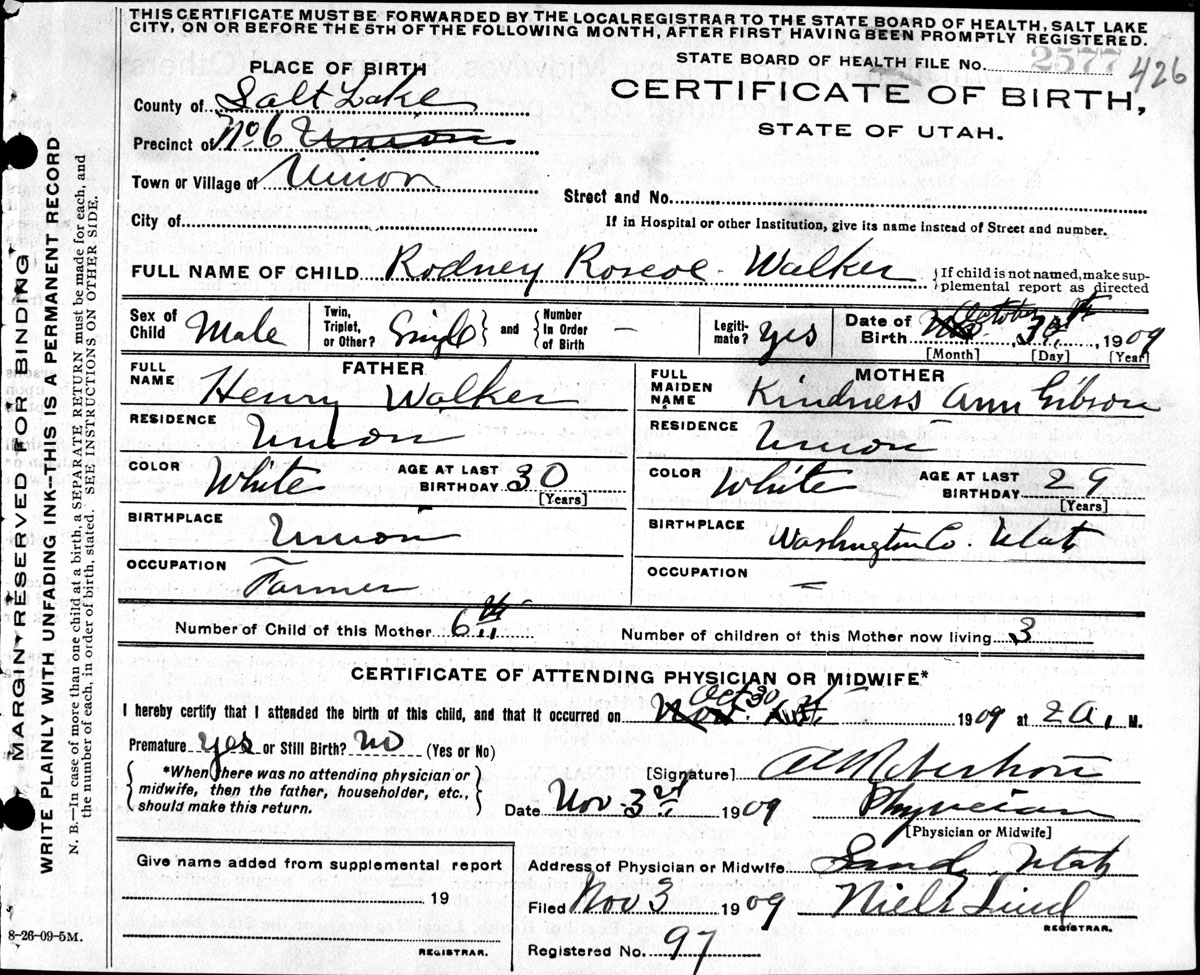 THIS CERTIFICATE MUST BE FORWARDED BY THE LOCALREGISTRAR TO THE STATE BOARD OF HEALTH, SALT LAKE
CITY, ON OR BEFORE THE 5TH OF THE FOLLOWING MONTH, AFTER FIRST HAVING BEEN PROMPTLY REGISTERED.
STATE BOARD OF HEALTH FILE No. 2577 426
PLACE OF BIRTH
CERTIFICATE OF BIRTH,
STATE OF UTAH.
County of Salt Lake
Precinct of No 6 Union
Town or Village of Union
Street and No.
City of
If in Hospital or other Institution, give its name instead of Street and number.
FULL NAME OF CHILD Rodney Roscoe Walker {If child is not named, make sup-
plemental report as directed
Sex of Child Male Twin, Triplet, or Other? Single and Number In Order of Birth – Legiti-mate? yes Date of Birth October 30th, 1909
[Month] [Day] [Year]
FATHER MOTHER
FULL NAME Henry Walker FULL MAIDEN NAME Kindness Ann Gibson
RESIDENCE Union RESIDENCE Union
COLOR White AGE AT LAST BIRTHDAY 30 [Years] COLOR White AGE AT LAST BIRTHDAY 29 [Years]
BIRTHPLACE Union BIRTHPLACE Washington Co. Utah
OCCUPATION Farmer OCCUPATION –
Number of Child of this Mother 6th Number of children of this Mother now living 3
CERTIFICATE OF ATTENDING PHYSICIAN OR MIDWIFE*
I hereby certify that I attended the birth of this child, and that it occurred on Oct 30 1909 at 2 a, M.
Premature yes or Still Birth? no (Yes or No)
*When there was no attending physician or
midwife, then the father, householder, etc.,
should make this return.
[Signature] Robertson
Date Nov. 3rd 1909 Physician
[Physician or Midwife]
Give name added from supplemental report
19
REGISTRAR.
Address of Physician or Midwife Sandy Utah
Filed Nov 3 1909 Niels Lind
REGISTRAR.
Registered No. 97
8-26-09-5M.
MARGIN RESERVED FOR BINDING
WRITE PLAINLY WITH UNFADING INK--THIS IS A PERMANENT RECORD
N. B.—In case of more than one child at a birth, a SEPARATE RETURN must be made for each, and
the number of each, in order of birth, stated. SEE INSTRUCTIONS ON OTHER SIDE.